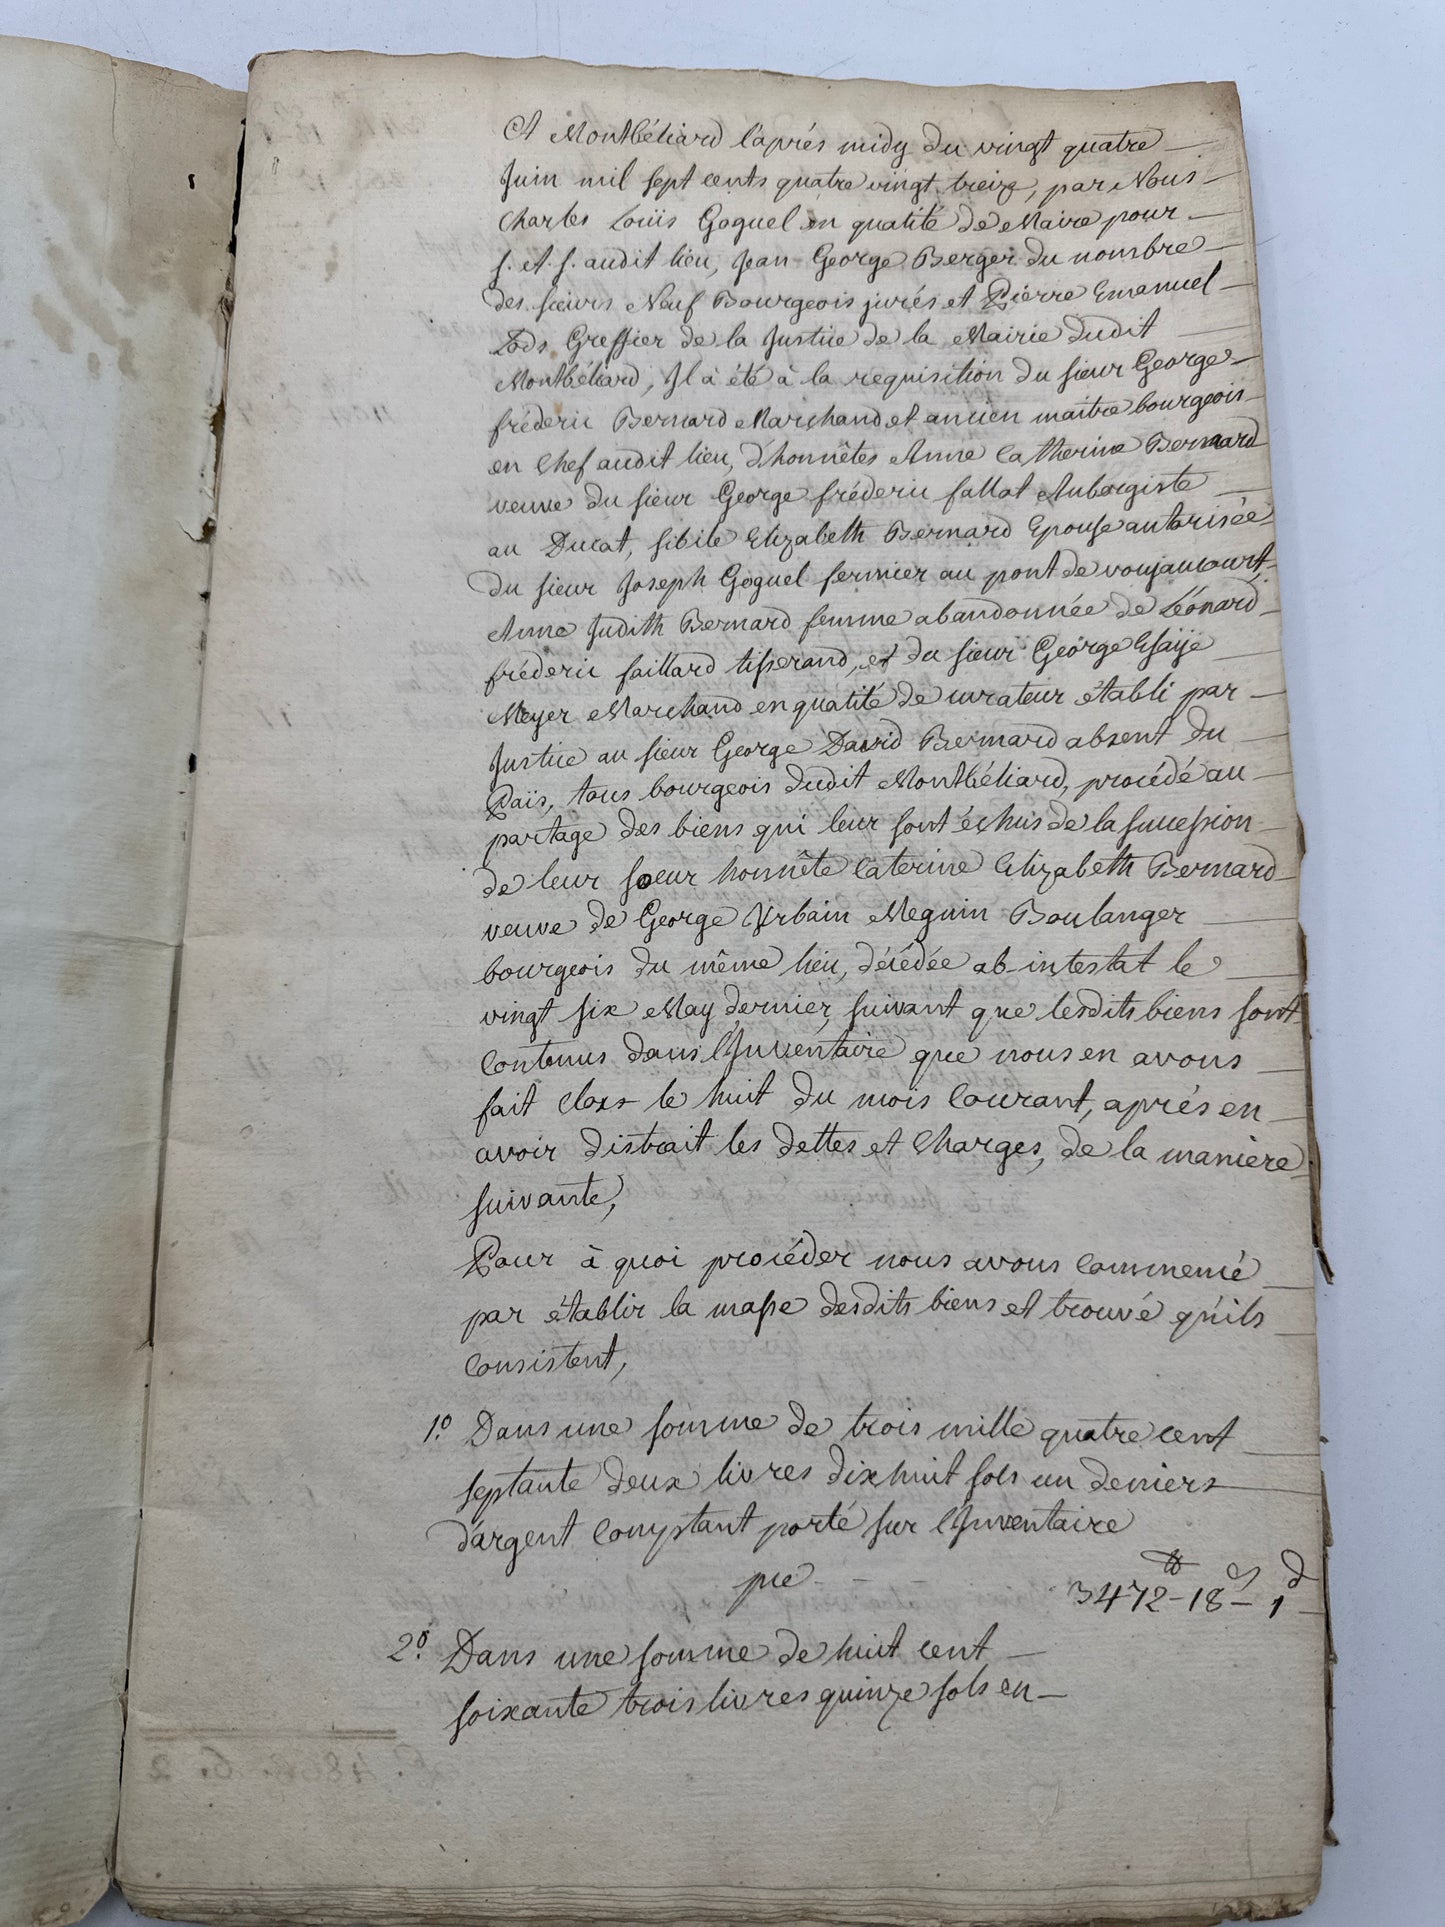 A Montbéliard l'aprés midy du vingt quatre
Juin mil sept cents quatre vingt treize, par Nous
Charles Louis Goguel en qualité de Maire pour
S. A. S. audit lieu, Jean George Berger du nombre
des sieurs Neuf Bourgeois jurés et Pierre Emanuel
Lods Greffier de la Justice de la Mairie dudit
Montbéliard, Il à été à la requisition du sieur George
fréderic Bernard Marchand et ancien maitre bourgeois
en Chef audit lieu, d'honnêtes Anne Catherine Bernard
veuve du sieur George fréderic fallot Aubergiste
au Ducat, Sibile Elizabeth Bernard Epouse autorisée
du sieur Joseph Goguel fermier au pont de voujaucourt,
Anne Judith Bernard femme abandonnée de Léonard
fréderic faillard tisserand, et du sieur George Esaïe
Meyer Marchand en qualité de curateur établi par
Justice au sieur George David Bernard absent du
Païs, tous bourgeois dudit Montbéliard, procédé au
partage des biens qui leur sont échus de la succession
de leur soeur honnête Caterine Elizabeth Bernard
veuve de George Urbain Meguin Boulanger
bourgeois du même lieu, décédée ab-intestat le
vingt six May dernier, suivant que lesdits biens sont
Contenus dans l'Inventaire que nous en avons
fait Clors le huit du mois Courant, aprés en
avoir distrait les dettes et Charges, de la maniere
suivante,
Pour à quoi procéder nous avons Commencé
par établir la masse desdits biens et trouvé qu'ils
Consistent,
1.º Dans une somme de trois mille quatre cent
septante deux livres dixhuit sols un deniers
d'argent Comptant porté sur l'Inventaire
pce - - 3472 ₶ - 18 s - 1 d
2.º Dans une somme de huit cent
soixante trois livres quinze sols en